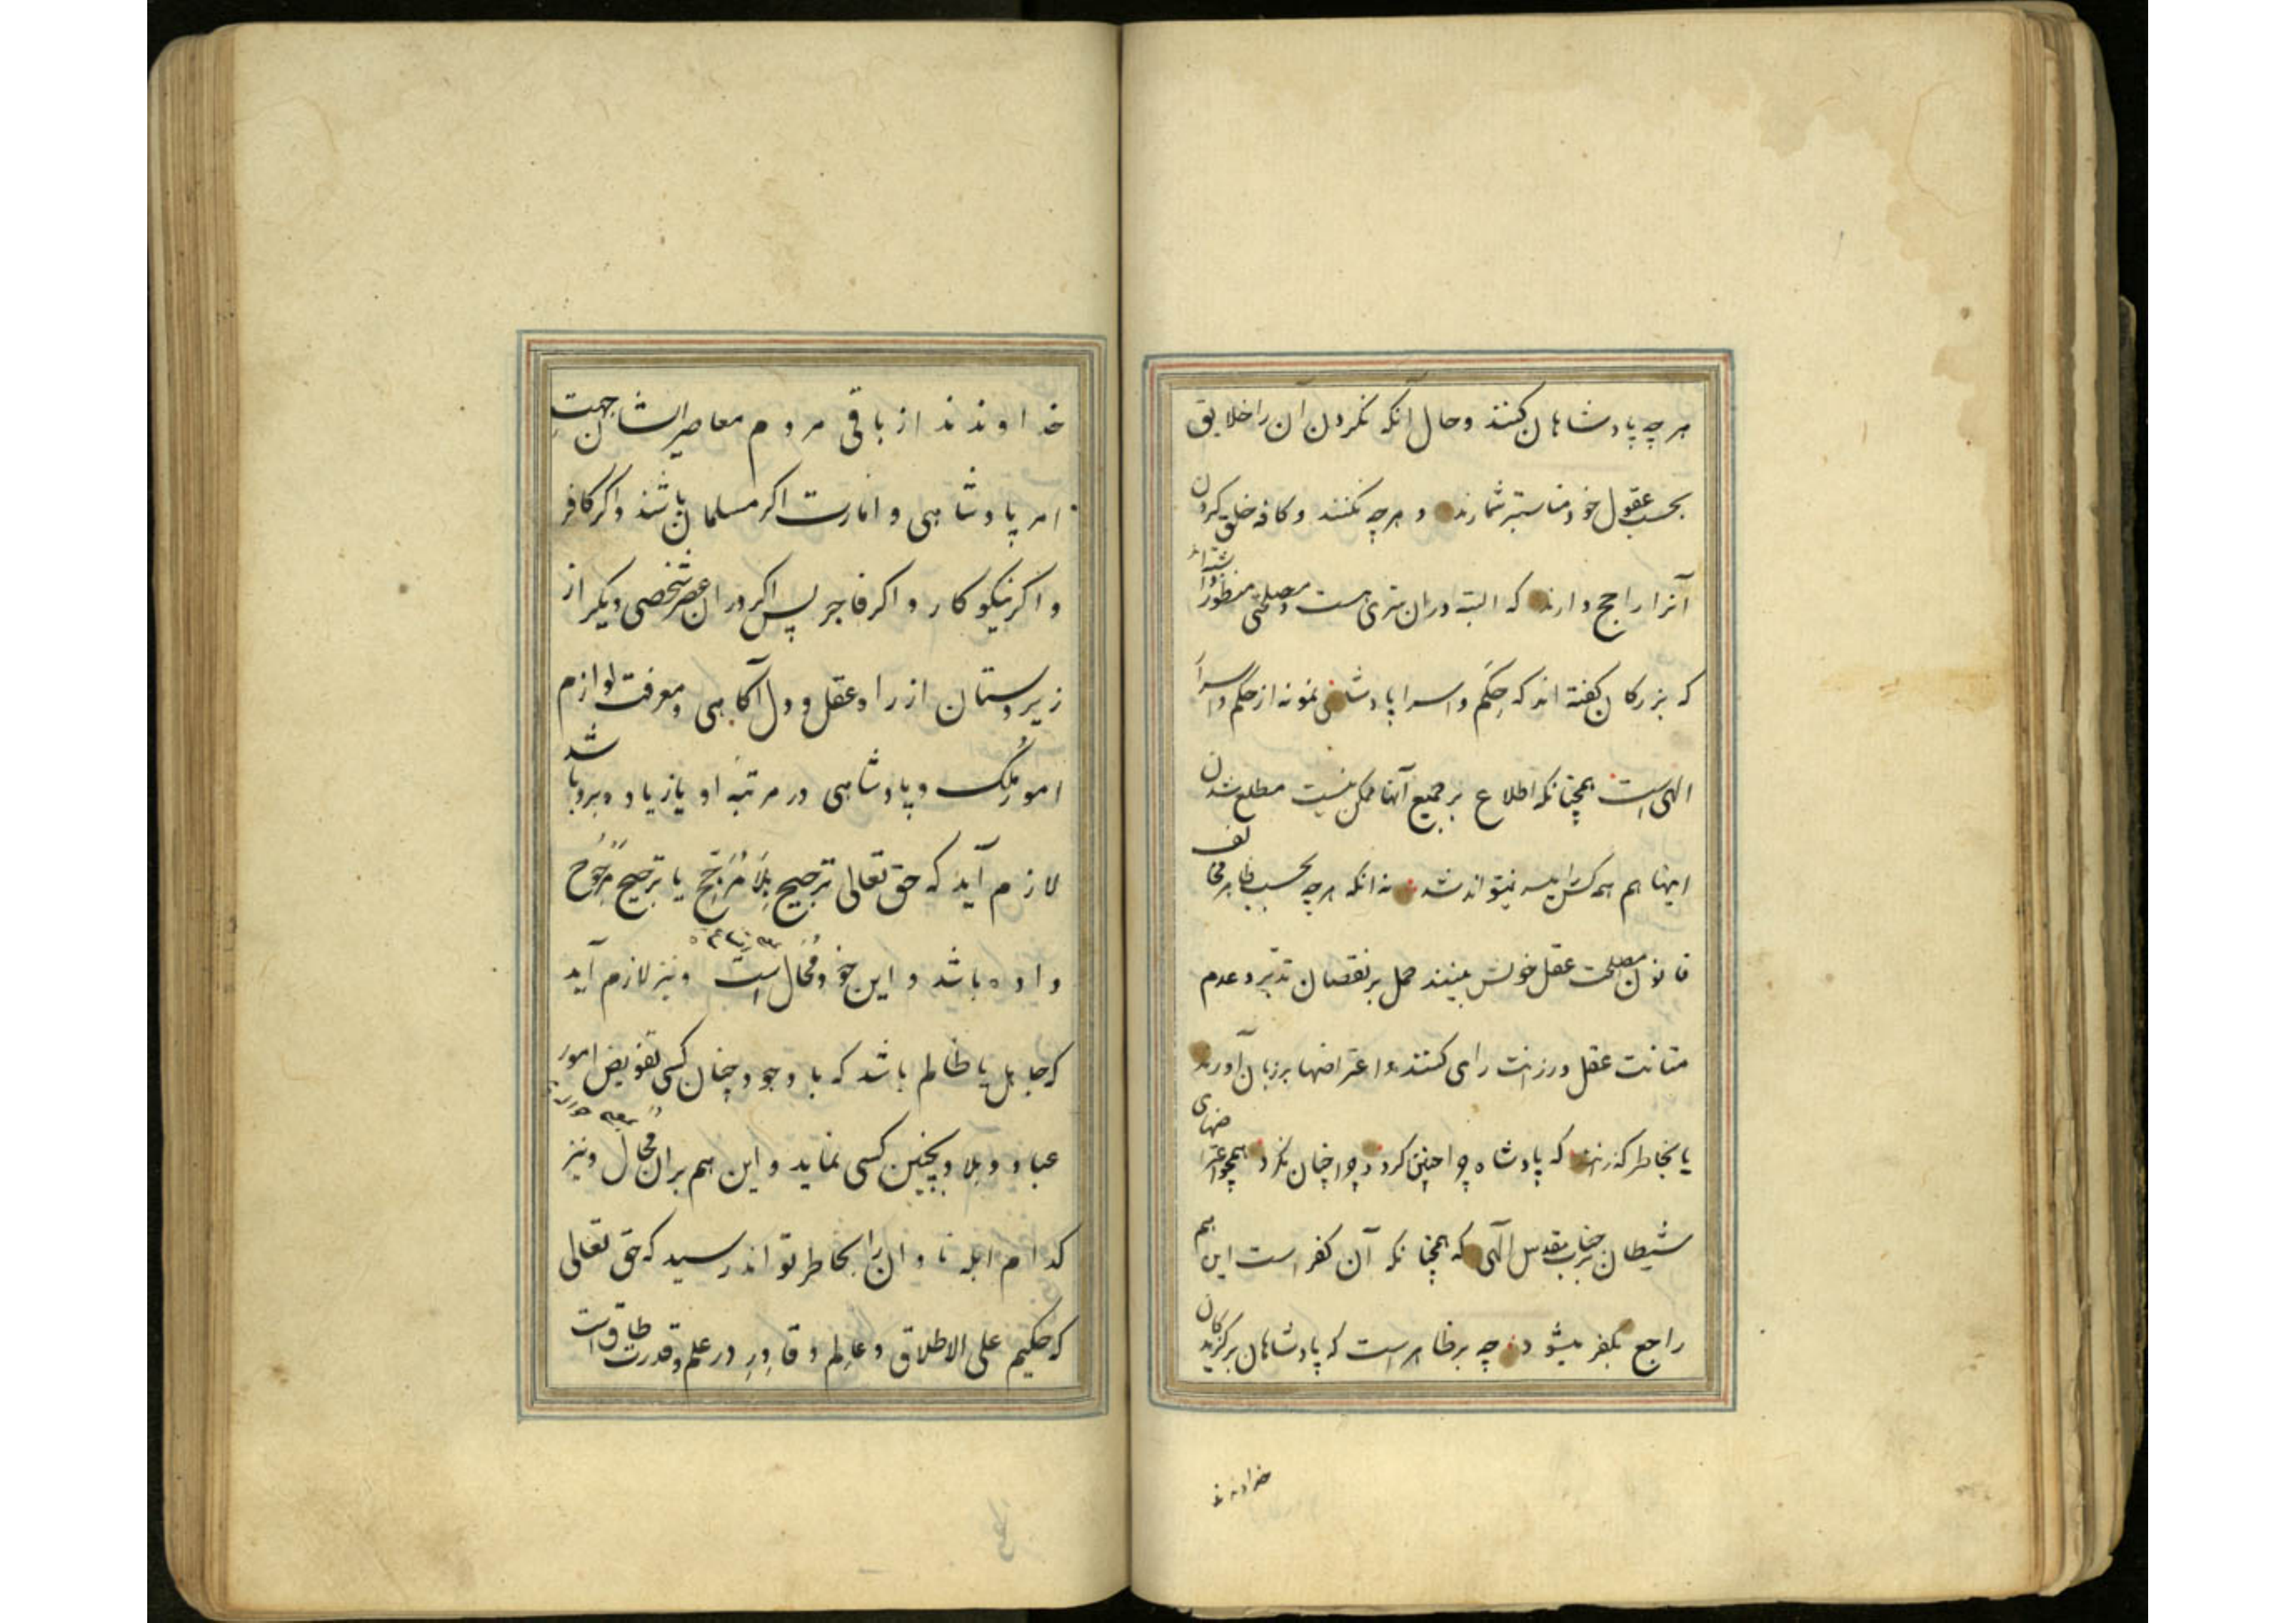 هر چه پادشاهان کنند و حال آنکه نکردن آن را خلایق
بحسب عقول خود مناسبتر شمارند و هر چه نکنند و کافه خلق کردن
آنرا راجح دارند که البته دران سری هست و مصلحتی منظور
که بزرکان کفته اند که حِکَم و اسرار پادشاهی نمونه از حِکَم و اسرار
الهی است همچنانکه اطلاع بر جمیع آنها ممکن نیست مطلع شدن
اینها هم همه کس را میسر نمیتواند شد نه انکه هر چه بحسب ظاهر مخالف
قانون مصلحت عقل خویش بینند حمل بر نقصان تدبیر و عدم
متانت عقل و رزانت رای کنند و اعتراضها بر زبان آورند
یا بخاطر کذرانند که پادشاه چرا چنین کرد و چرا چنان نکرد همچو اعتراضهای
شیطان بر جناب مقدس الهی که همچنانکه آن کفر است این هم
راجع بکفر میشود چه بر ظاهر است که پادشاهان برکزیدکان
خداوندند
خداوندند از باقی مردم معاصر ایشان جهت
امر پادشاهی و امارت اکر مسلمان باشند و اکر کافر
و اکر نیکوکار و اکر فاجر پس اکر دران عصر شخصی دیکر از
زیردستان از راه عقل و دل آکاهی و معرفت لوازم
امور مُلک و پادشاهی در مرتبه او یا زیاده برو باشد
لازم آید که حق تعالی ترجیح بِلا مُرَجّح یا ترجیح مرجُوح
داده باشد و این خود مُحال است و نیز لازم آید
که جاهل یا ظالم باشد که با وجود چنان کسی تفویض امور
عباد و بلاد بچنین کسی نماید و این هم بران محال و نیز
کدام ابله نادان را بخاطر تواند رسید که حق تعالی
که حکیم علی الاطلاق و عالِم و قادِر در علم و قدرت طاق است